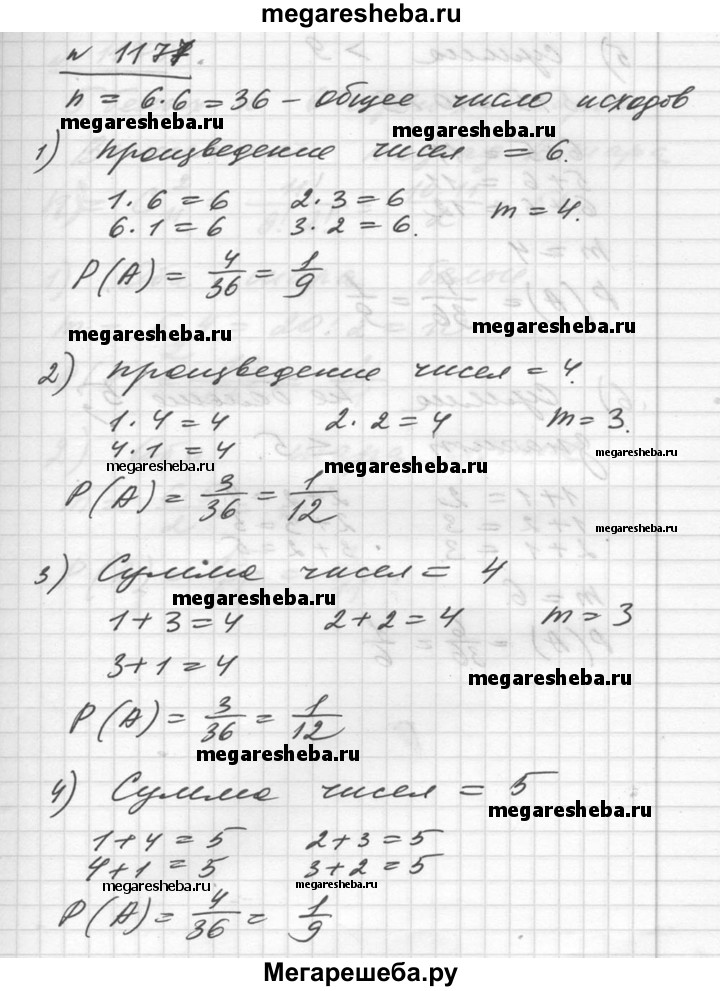 megaresheba.ru
№ 1177.
n = 6·6 = 36 – общее число исходов
megaresheba.ru megaresheba.ru
1) произведение чисел = 6.
1·6 = 6 2·3 = 6 m = 4.
6·1 = 6 3·2 = 6.
P(A) = 4/36 = 1/9
megaresheba.ru megaresheba.ru
2) произведение чисел = 4.
1·4 = 4 2·2 = 4 m = 3.
4·1 = 4
megaresheba.ru megaresheba.ru megaresheba.ru
P(A) = 3/36 = 1/12
megaresheba.ru
3) Сумма чисел = 4
megaresheba.ru
1+3 = 4 2+2 = 4 m = 3
3+1 = 4
megaresheba.ru
P(A) = 3/36 = 1/12
megaresheba.ru
4) Сумма чисел = 5
megaresheba.ru
1+4 = 5 2+3 = 5
4+1 = 5 3+2 = 5
megaresheba.ru megaresheba.ru
P(A) = 4/36 = 1/9
Мегарешеба.ру